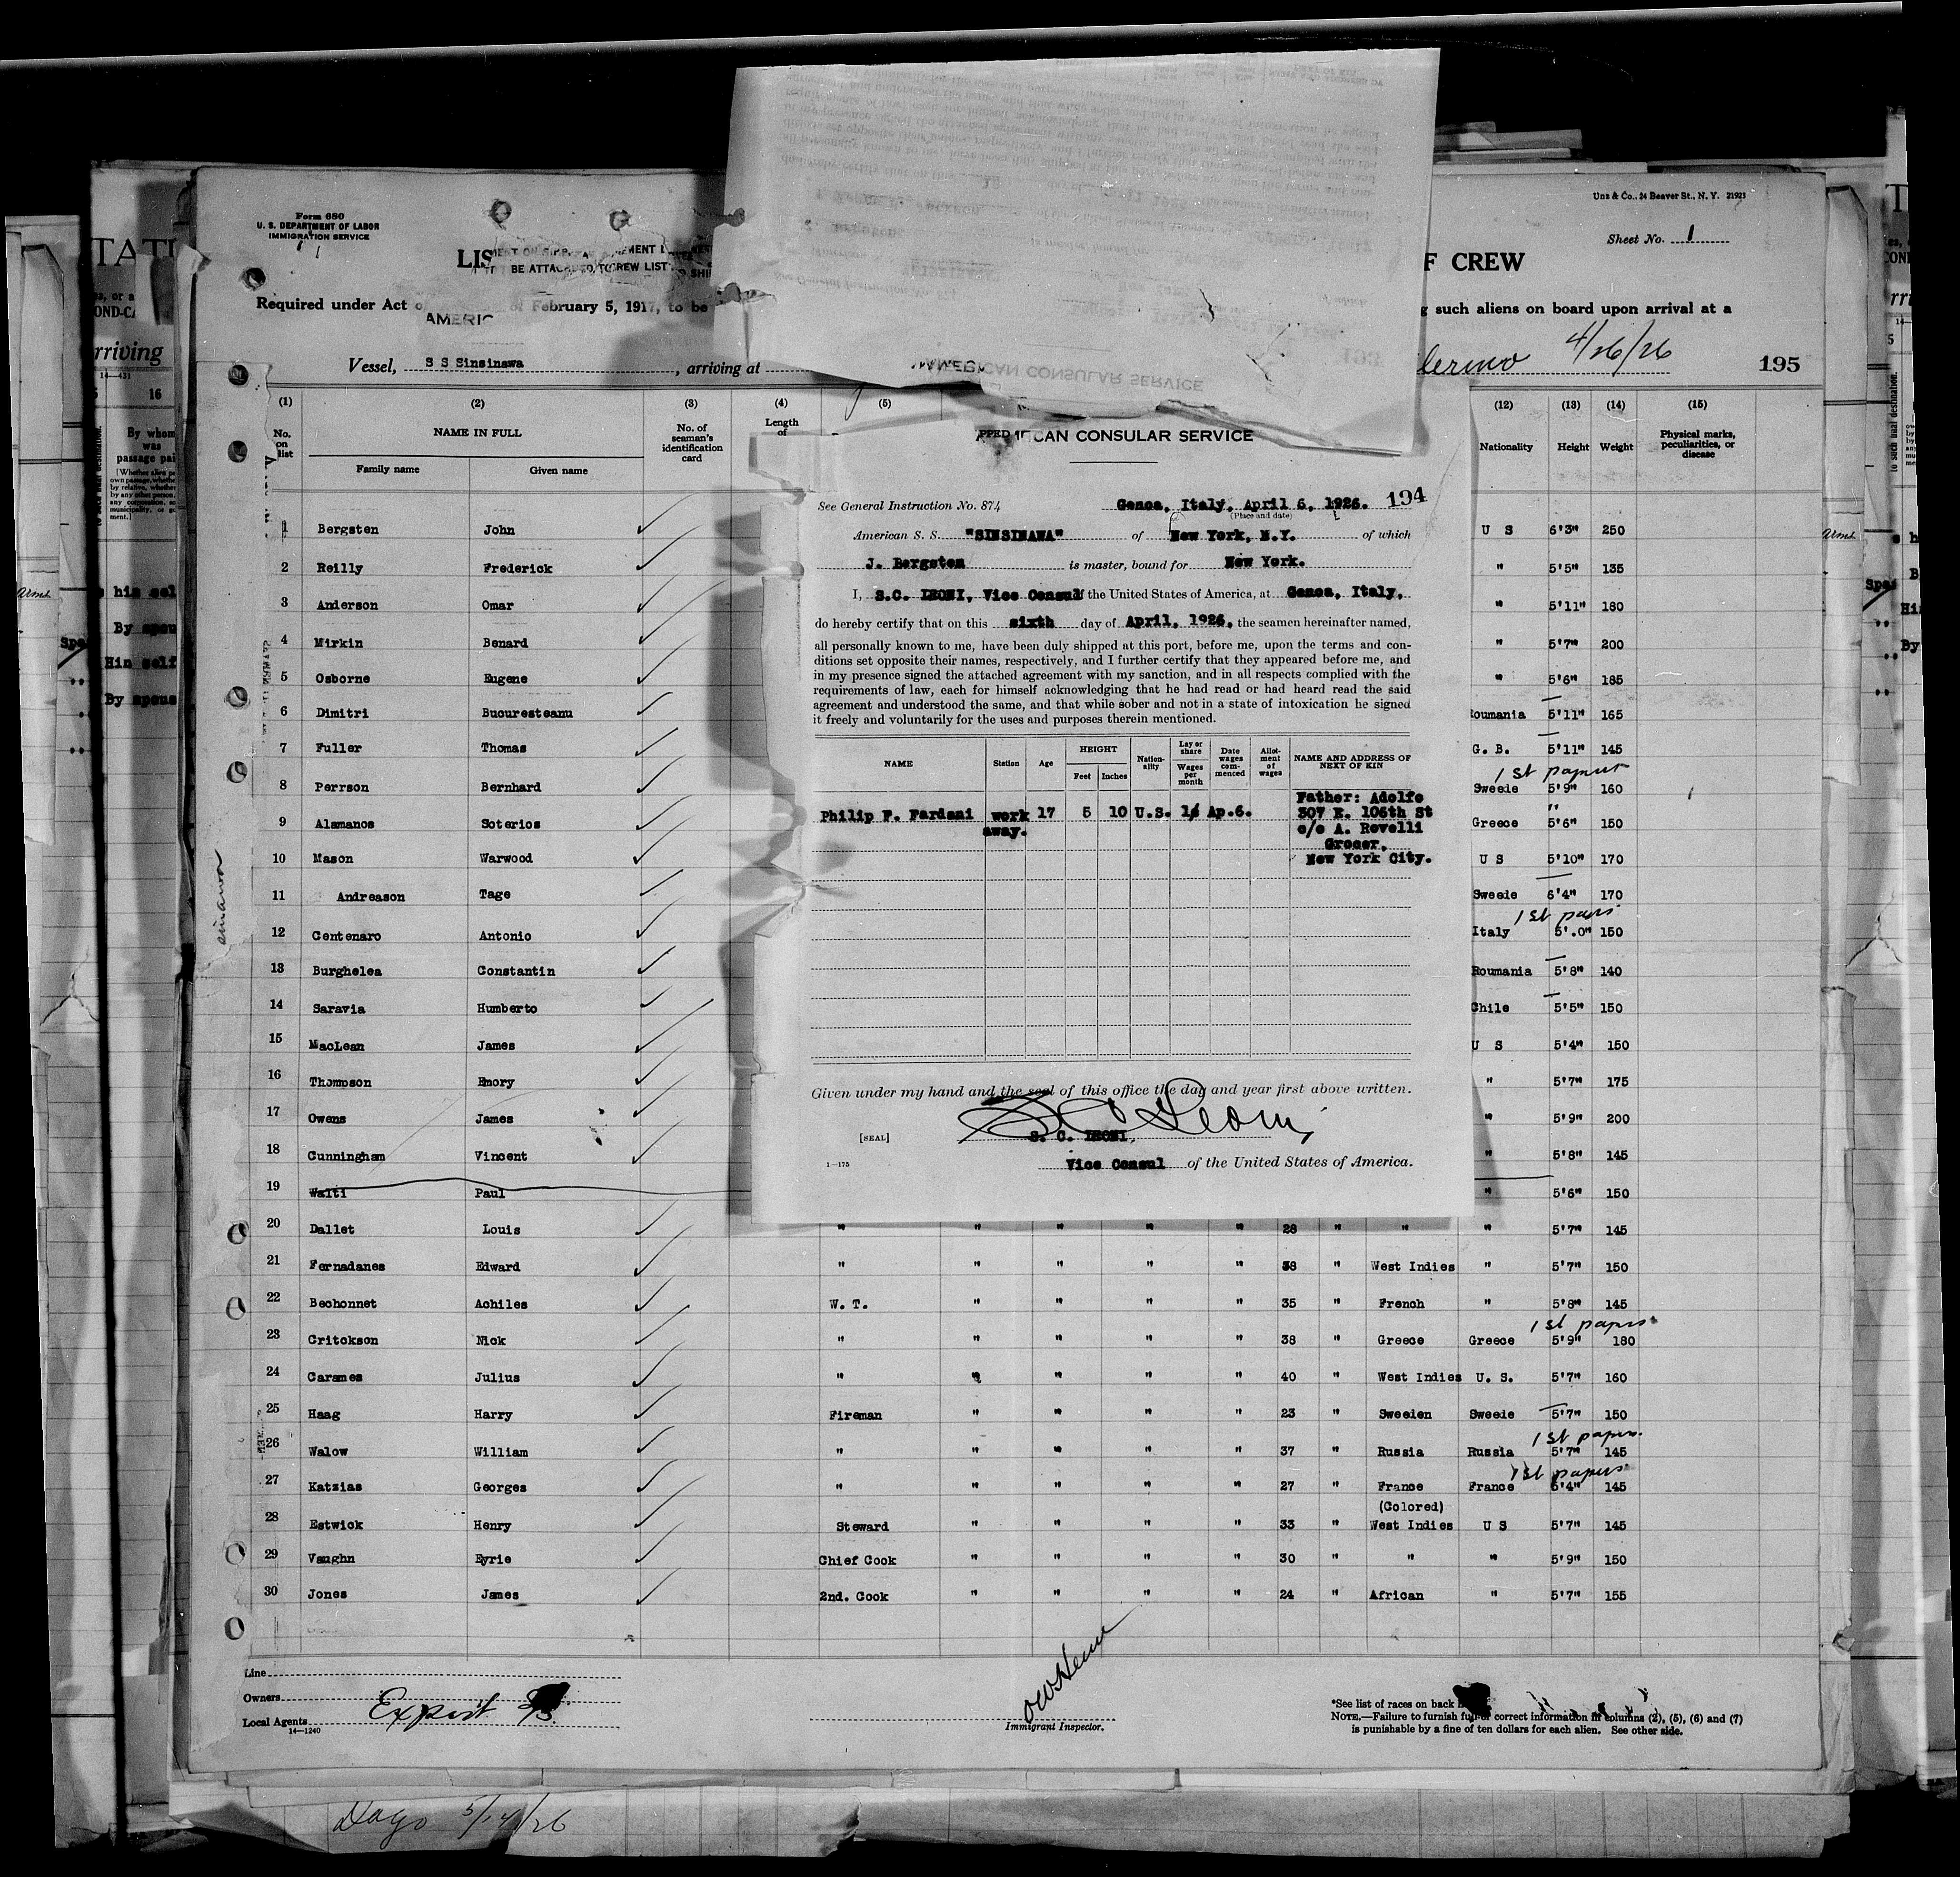 Form 680
U. S. DEPARTMENT OF LABOR
IMMIGRATION SERVICE
Unz & Co., 24 Beaver St., N. Y. 21921
Sheet No. 1
LIS
F CREW
BE ATTACHED TO CREW LIST
Required under Act o of February 5, 1917, to be
g such aliens on board upon arrival at a
AMERIC
Vessel, S S Sinsinawa, arriving at
lermo 4/26/26
195
(1) (2) (3) (4) (5) (12) (13) (14) (15)
No. on list
NAME IN FULL
Family name Given name
No. of seaman's identification card
Length of
Nationality Height Weight Physical marks, peculiarities, or disease
1 Bergsten John U S 6'3" 250
2 Reilly Frederick " 5'5" 135
3 Anderson Omar " 5'11" 180
4 Mirkin Benard " 5'7" 200
5 Osborne Eugene " 5'6" 185
6 Dimitri Bucuresteanu Roumania 5'11" 165
7 Fuller Thomas G. B. 5'11" 145
1st papers
8 Perrson Bernhard Swede 5'9" 160
"
9 Alamanos Soterios Greece 5'6" 150
10 Mason Warwood U S 5'10" 170
11 Andreason Tage Swede 6'4" 170
1st papers
12 Centenaro Antonio Italy 5'.0" 150
13 Burghelea Constantin Roumania 5'8" 140
14 Saravia Humberto Chile 5'5" 150
15 MacLean James U S 5'4" 150
16 Thompson Emory " 5'7" 175
17 Owens James " 5'9" 200
18 Cunningham Vincent " 5'8" 145
19 Waiti Paul " 5'6" 150
20 Dallet Louis " " " " " 28 " " " 5'7" 145
21 Fernadanes Edward " " " " " 38 " West Indies " 5'7" 150
22 Bechonnet Achiles W. T. " " " " 35 " French " 5'8" 145
1st papers
23 Critckson Nick " " " " " 38 " Greece Greece 5'9" 180
24 Carames Julius " " " " " 40 " West Indies U. S. 5'7" 160
25 Haag Harry Fireman " " " " 23 " Sweden Swede 5'7" 150
1st papers
26 Walow William " " " " " 37 " Russia Russia 5'7" 145
1st papers
27 Katzias Georges " " " " " 27 " France France 5'4" 145
(Colored)
28 Estwick Henry Steward " " " " 33 " West Indies U S 5'7" 145
29 Vaughn Eyrie Chief Cook " " " " 30 " " " 5'9" 150
30 Jones James 2nd. Cook " " " " 24 " African " 5'7" 155
Line
Owners
Local Agents
Export
14—1240
Immigrant Inspector.
*See list of races on back
NOTE.—Failure to furnish full or correct information in columns (2), (5), (6) and (7)
is punishable by a fine of ten dollars for each alien. See other side.
5/14/26
AMERICAN CONSULAR SERVICE
AMERICAN CONSULAR SERVICE
194
See General Instruction No. 874
Genoa, Italy, April 6, 1926.
(Place and date)
American S. S. "SINSINAWA" of New York, N.Y. of which
J. Bergsten is master, bound for New York.
I, S.C. LEONI, Vice Consul of the United States of America, at Genoa, Italy,
do hereby certify that on this sixth day of April, 1926, the seamen hereinafter named,
all personally known to me, have been duly shipped at this port, before me, upon the terms and con-
ditions set opposite their names, respectively, and I further certify that they appeared before me, and
in my presence signed the attached agreement with my sanction, and in all respects complied with the
requirements of law, each for himself acknowledging that he had read or had heard read the said
agreement and understood the same, and that while sober and not in a state of intoxication he signed
it freely and voluntarily for the uses and purposes therein mentioned.
NAME Station Age HEIGHT Feet Inches Nation-ality Lay or share Wages per month Date wages com-menced Allot-ment of wages NAME AND ADDRESS OF NEXT OF KIN
Philip F. Fardani work away. 17 5 10 U.S. 1¢ Ap.6.
Father: Adolfo
307 E. 106th St
c/o A. Revelli
Grocer,
New York City.
Given under my hand and the seal of this office the day and year first above written.
S C Leoni
[SEAL]
S. C. LEONI,
1—175
Vice Consul of the United States of America.
TATE
rriving
14—431
16
By whom was passage pai
By spou
Him self
By spous